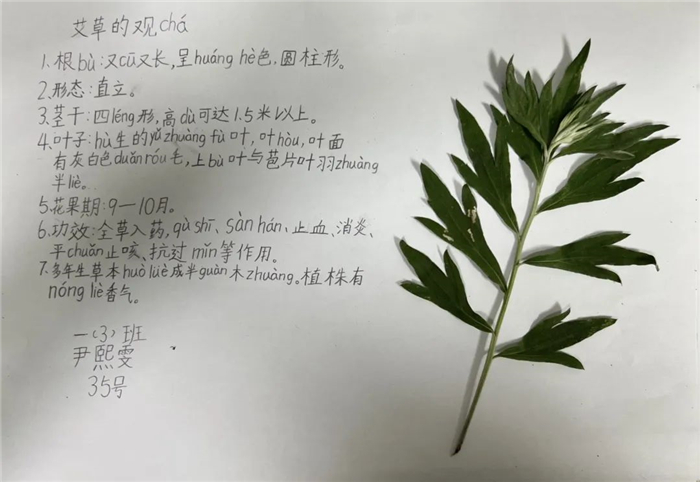 艾草的观chá
1.根bù:又cū又长,呈huáng hè色,圆柱形。
2.形态:直立。
3.茎干:四léng形,高dù可达1.5米以上。
4.叶子:hù生的yǔ zhuàng fù叶,叶hòu,叶面
有灰白色duǎn róu毛,上bù叶与苞片叶羽zhuàng
半liè。
5.花果期:9—10月。
6.功效:全草入药,qù shī、sàn hán、止血、消炎、
平chuǎn止咳、抗过mǐn等作用。
7.多年生草本huò lüè成半guàn木zhuàng。植株有
nóng liè香气。
一(3)班
尹熙雯
35号